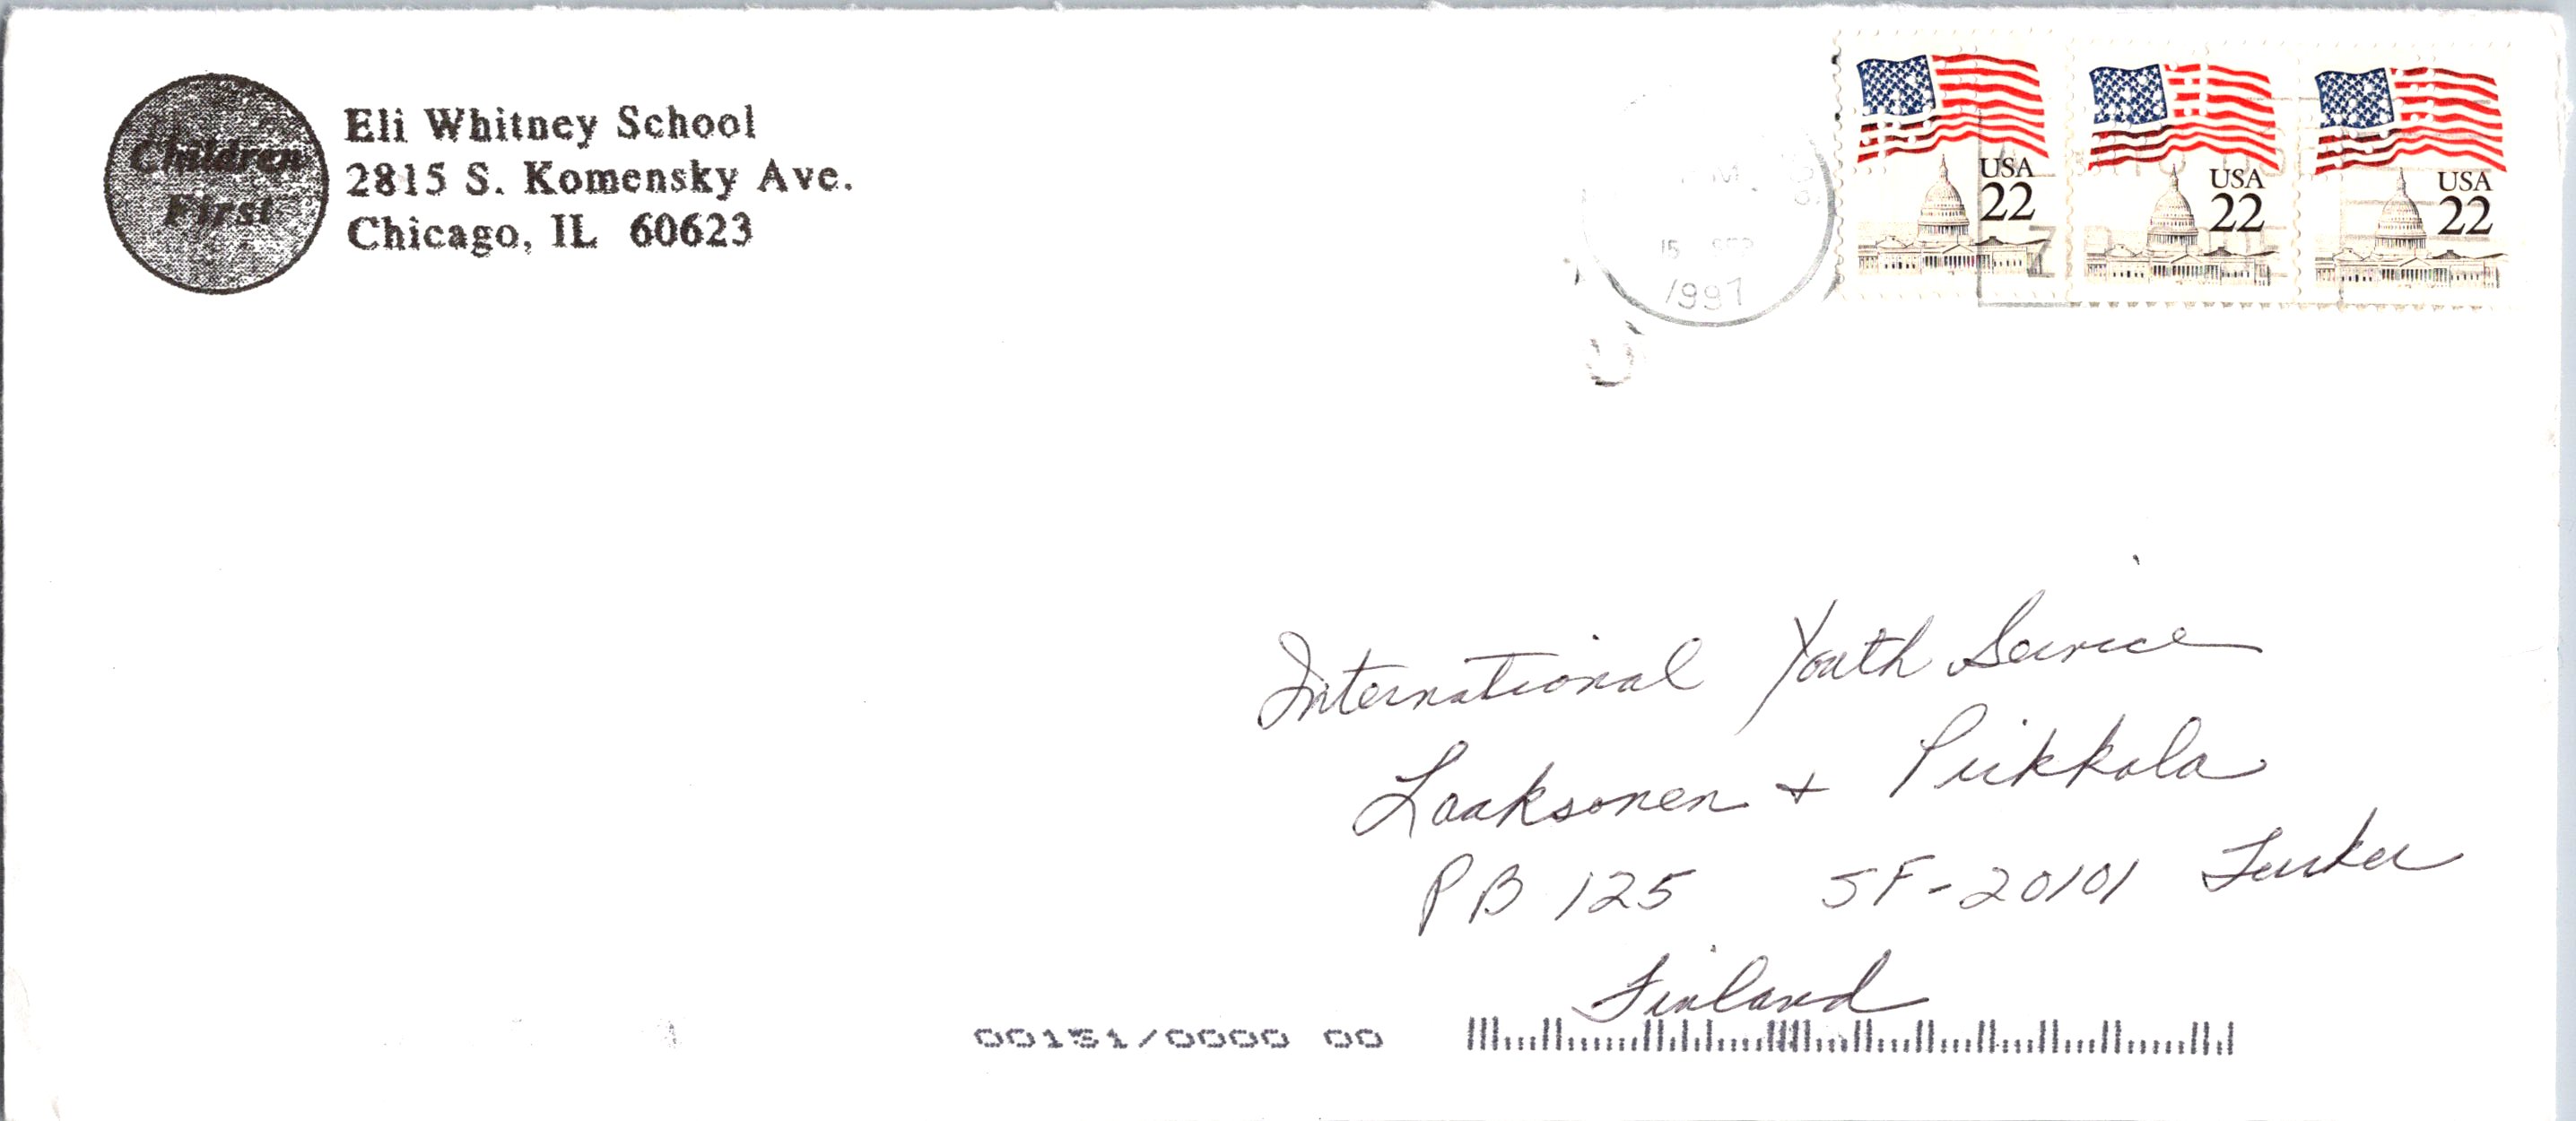 Children
First
Eli Whitney School
2815 S. Komensky Ave.
Chicago, IL 60623
15 SEP
1997
USA
22
USA
22
USA
22
International Youth Service
Laaksonen + Piikkola
PB 125 SF-20101 Turku
Finland
00131/0000 00